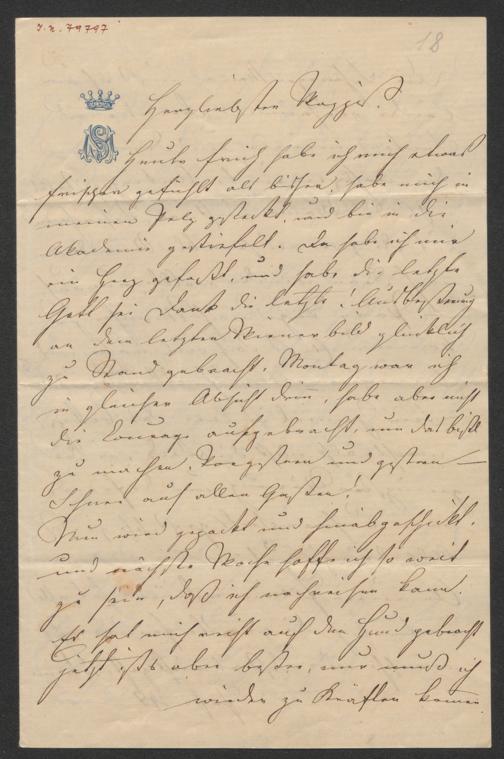 I.N. 79797
18
Herzliebster Poggius!
Heute früh habe ich mich etwas
frischer gefühlt als bisher, habe mich in
meinen Pelz gesteckt, und bin in die
Akademie gestiefelt. Da habe ich mir
ein Herz gefaßt, und habe die letzte
Gott sei Dank die letzte! Ausbesserung
an dem letzten Wiener bild glücklich
zu Stand gebracht. Montag war ich
in gleicher Absicht drin, habe aber nicht
die Courage aufgebracht, um das bißl
zu machen. Vorgestern und gestern –
Schnee auf allen Gassen!
Nun wird gepackt und hinabgeschickt,
und nächste Woche hoffe ich so weit
zu sein, daß ich nachreisen kann.
Es hat mich recht auf den Hund gebracht
jetzt ists aber besser, nur muß ich
wieder zu Kräften kommen